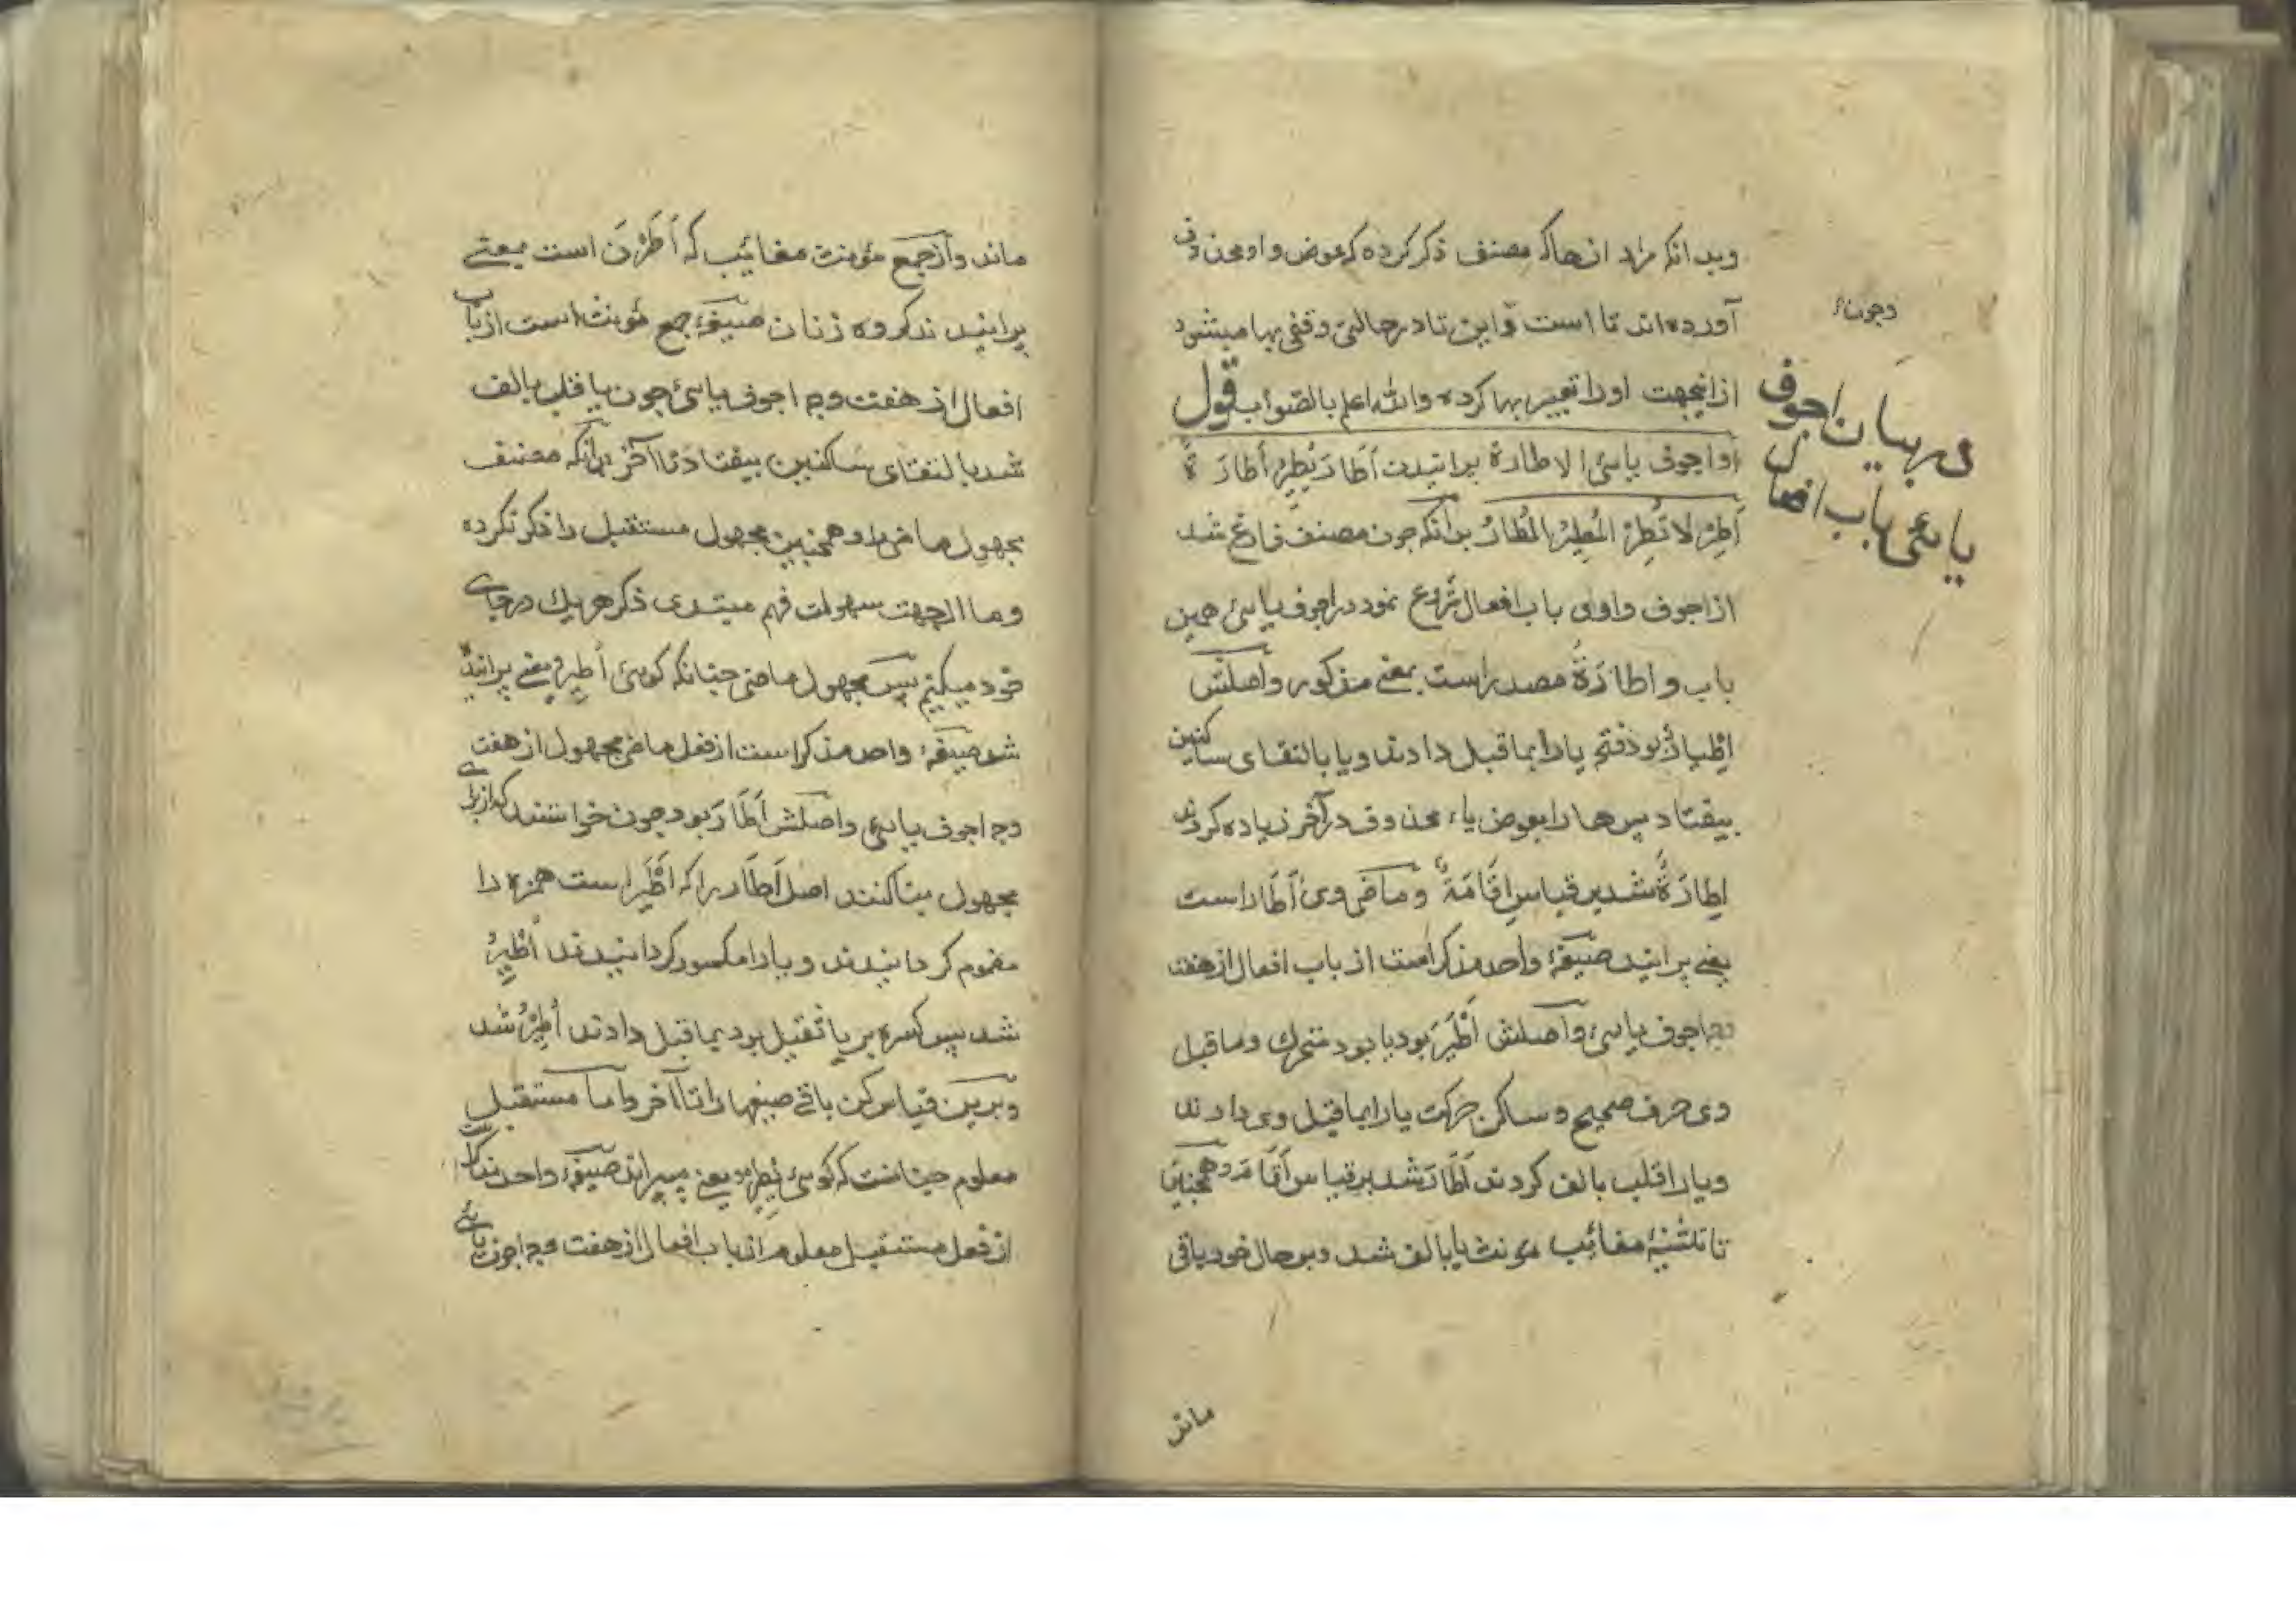 وبدانکه مراد ازهاکه مصنف ذکر کرده که عوض واو محذوف
آورده‌اند تا است و این تا در حالتی وقفی بها میشود
ازاینجهت اورا تعبیر بها کرده والله اعلم بالصواب قول
اواجوف یایئ الاطارة پرانیدن أَطَارَ یُطِیْرُ أطارَةً
أَطِرْ لاتُطِرْ المُطِیْرُ المُطَارُ بدانکه چون مصنف فارغ شد
از اجوف واوی باب افعال شروع نمود در اجوف یایئ همین
باب و اطارَةُ مصدر است بمعنی مذکور واصلش
اِطْیارٌ بود فتحه یا را بما قبل دادند و یا بالتقای ساکنین
بیفتاد پس ها را بعوض یاء محذوف در آخر زیاده کردند
اِطَارَةً شد بر قیاس اِقَامَةً و ماضی وی أَطَار است
یعنی پرانید صیغهٔ واحد مذکر است از باب افعال از هفت
وجه اجوف یایئ واصلش أَطْیَرَ بود یا بود متحرک و ما قبل
وی حرف صحیح و ساکن حرکت یا را بما قبل وی دادند
و یا را قلب بالف کردند أَطَارَ شد بر قیاس أَقَامَ وهمچنین
تا تثنیهٔ مغائب مونث یا بالف شد و بر حال خود باقی
ماند
در بیان اجوف
یایئ باب افعال
ماند واز جمع مؤنث مغائب که أَطَرْنَ است یعنے
پرانیدند گروه زنان صیغهٔ جمع مؤنث است از باب
افعال از هفت وجه اجوف یایئ چون یا قلب بالف
شد بالتقای ساکنین بیفتاد تا آخر بدانکه مصنف
مجهول ماضی را و همچنین مجهول مستقبل را ذکر نکرده
وما از جهت سهولت فهم مبتدی ذکر هریک در جای
خود میکنیم پس مجهول ماضی چنانکه گویئ أُطِیْرَ یعنے پرانیده
شد صیغهٔ واحد مذکر است از فعل ماضی مجهول از هفت
وجه اجوف یایئ واصلش أَطَارَ بود چون خواستند که از برای
مجهول بنا کنند اصل أَطَار را که أَطْیَرَ است همزه را
مضموم گردانیدند و یا را مکسور گردانیدند أُطْیِرَ
شد پس کسره بر یا ثقیل بود بما قبل دادند أُطِیْرَ شد
و برین قیاس کن باقی صیغها را تا آخر و اما مستقبل
معلوم چنانست که گویئ یُطِیْرُ یعنے میپراند صیغهٔ واحد مذکر است
از فعل مستقبل معلوم از باب افعال از هفت وجه اجوف یایئ